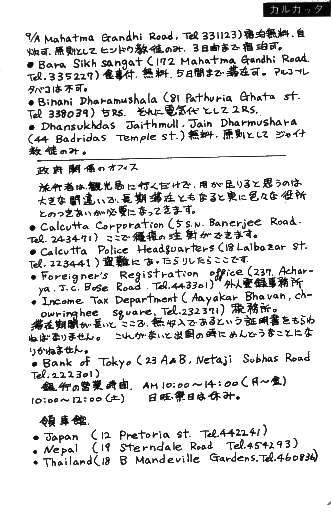 カルカッタ
9/A Mahatma Gandhi Road, Tel 331123) 宿泊無料、自
炊可。原則として ヒンドゥ教徒のみ。3日間まで宿泊可。
● Bara Sikh Sangat (172 Mahatma Gandhi Road.
Tel. 335227) 食事付、無料、5日間まで滞在可。アルコール
タバコは不可。
● Binani Dharamushala (81 Pathuria Ghata st.
Tel 338039) 5RS. それに電気代として2RS.
● Dhansukhdas Jaithmull. Jain Dharmushara
(44 Badridas Temple st.) 無料、原則として ジャイナ
教徒のみ。
政府関係のオフィス
旅行者は観光局に行くだけで、用が足りると思うのは
大きな間違い。長期滞在ともなると実に色々な役所
とのつきあいが必要になってきます。
● Calcutta Corporation (5 S.N. Banerjee Road.
Tel. 243471) ここで種痘の注射ができます。
● Calcutta Police Headquarters (18 Lalbazar st.
Tel. 223441) 盗難にあったらここです。
● Foreigner's Registration office (237, Achar-
ya. J.C. Bose Road. Tel. 443301) 外人登録事務所
● Income Tax Department (Aayakar Bhavan, ch-
owringhee square, Tel. 232371) 税務所。
滞在期間が長いと、ここで、無収入であるという証明書をもらわ
ねばなりません。これがないと出国の時にめんどうなことにな
りかねません。
● Bank of Tokyo (23 A&B, Netaji Subhas Road
Tel. 222301)
銀行の営業時間、AM 10:00〜14:00 (月〜金)
10:00〜12:00 (土) 日曜・祭日は休み。
領事館.
● Japan (12 Pretoria st. Tel. 442241)
● Nepal (19 Sterndale Road Tel. 454293)
● Thailand (18 B Mandeville Gardens. Tel. 460836)